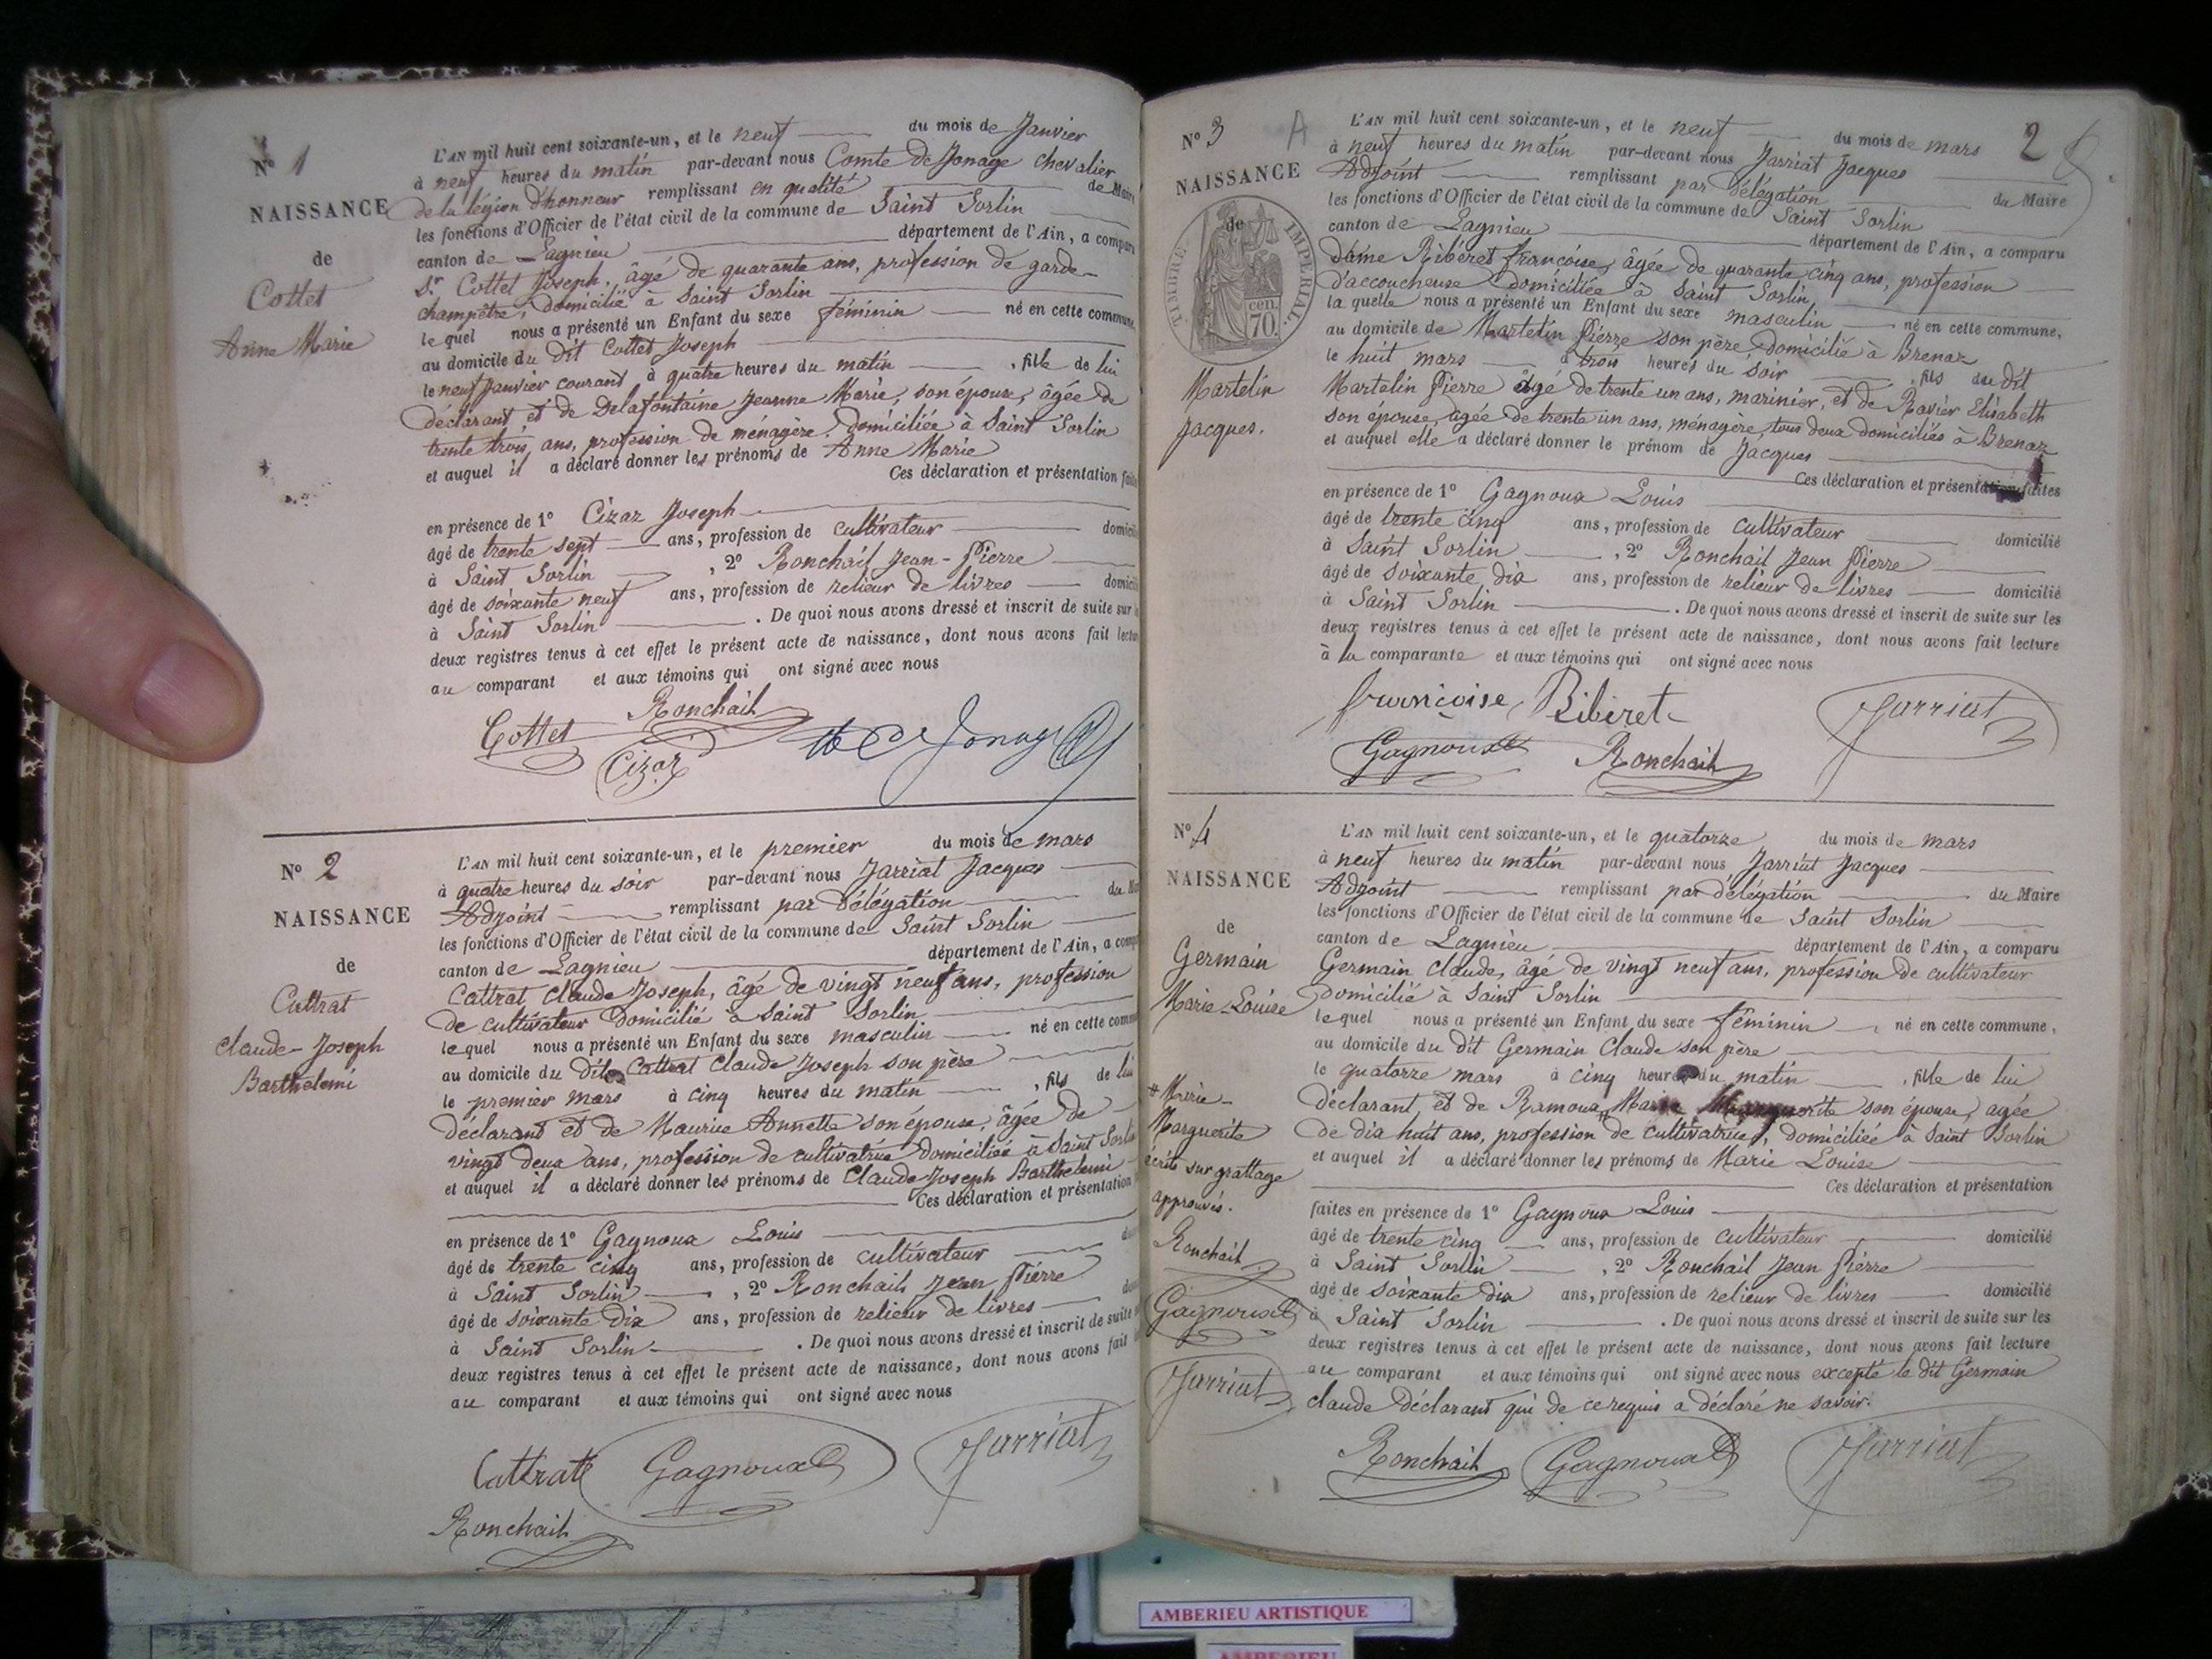 N° 1
NAISSANCE
de
Cottet
Anne Marie
L'AN mil huit cent soixante-un, et le neuf du mois de Janvier
à neuf heures du matin par-devant nous Comte de Jonage chevalier
de la légion d'honneur remplissant en qualité de Maire
les fonctions d'Officier de l'état civil de la commune de Saint Sorlin
canton de Lagnieu département de l'Ain, a comparu
Sr Cottet Joseph, âgé de quarante ans, profession de garde-
champêtre, domicilié à Saint Sorlin
le quel nous a présenté un Enfant du sexe féminin né en cette commune,
au domicile du dit Cottet Joseph
le neuf Janvier courant à quatre heures du matin, fille de lui
déclarant et de Delafontaine Jeanne Marie, son épouse, âgée de
trente trois ans, profession de ménagère, domiciliée à Saint Sorlin
et auquel il a déclaré donner les prénoms de Anne Marie
Ces déclaration et présentation
en présence de 1° Cizar Joseph
âgé de trente sept ans, profession de cultivateur
à Saint Sorlin, 2° Ronchail Jean-Pierre
âgé de soixante neuf ans, profession de relieur de livres
à Saint Sorlin. De quoi nous avons dressé et inscrit de suite sur
deux registres tenus à cet effet le présent acte de naissance, dont nous avons fait
au comparant et aux témoins qui ont signé avec nous
Cottet Ronchail
Cizar
N° 2
NAISSANCE
de
Cattrat
Claude-Joseph
Barthelemi
L'AN mil huit cent soixante-un, et le premier du mois de mars
à quatre heures du soir par-devant nous Jarriat Jacques
Adjoint remplissant par délégation du
les fonctions d'Officier de l'état civil de la commune de Saint Sorlin
canton de Lagnieu département de l'Ain, a
Cattrat Claude Joseph, âgé de vingt neuf ans, profession
de cultivateur domicilié à Saint Sorlin
le quel nous a présenté un Enfant du sexe masculin né en cette
au domicile du dit Cattrat Claude Joseph son père
le premier mars à cinq heures du matin, fils de lui
déclarant et de Maurice Annette son épouse, âgée de
vingt deux ans, profession de cultivatrice domiciliée à Saint Sorlin
et auquel il a déclaré donner les prénoms de Claude Joseph Barthelemi
Ces déclaration et présentation
en présence de 1° Gagnoux Louis
âgé de trente cinq ans, profession de cultivateur
à Saint Sorlin, 2° Ronchail Jean Pierre
âgé de soixante dix ans, profession de relieur de livres
à Saint Sorlin. De quoi nous avons dressé et inscrit de suite
deux registres tenus à cet effet le présent acte de naissance, dont nous avons fait
au comparant et aux témoins qui ont signé avec nous
Cattrat Gagnoux Jarriat
Ronchail
N° 3 A
NAISSANCE
de
TIMBRE IMPERIAL
cen.
70.
Martelin
Jacques.
2
L'AN mil huit cent soixante-un, et le neuf du mois de mars
à neuf heures du matin par-devant nous Jarriat Jacques
Adjoint remplissant par délégation du Maire
les fonctions d'Officier de l'état civil de la commune de Saint Sorlin
canton de Lagnieu département de l'Ain, a comparu
dame Ribéret françoise, âgée de quarante cinq ans, profession
d'accoucheuse domiciliée à Saint Sorlin
la quelle nous a présenté un Enfant du sexe masculin né en cette commune,
au domicile de Martelin Pierre son père, domicilié à Brenaz
le huit mars à trois heures du soir, fils du dit
Martelin Pierre âgé de trente un ans, marinier, et de Ravier Elisabeth
son épouse, âgée de trente un ans, ménagère, tous deux domiciliés à Brenaz
et auquel elle a déclaré donner le prénom de Jacques
Ces déclaration et présentation faites
en présence de 1° Gagnoux Louis
âgé de trente cinq ans, profession de cultivateur domicilié
à Saint Sorlin, 2° Ronchail Jean Pierre
âgé de soixante dix ans, profession de relieur de livres domicilié
à Saint Sorlin. De quoi nous avons dressé et inscrit de suite sur les
deux registres tenus à cet effet le présent acte de naissance, dont nous avons fait lecture
à la comparante et aux témoins qui ont signé avec nous
françoise Ribéret Jarriat
Gagnoux Ronchail
N° 4
NAISSANCE
de
Germain
Marie-Louise
Marie-
Marguerite
écrits sur grattage
approuvés.
Ronchail
Gagnoux
Jarriat
L'AN mil huit cent soixante-un, et le quatorze du mois de mars
à neuf heures du matin par-devant nous Jarriat Jacques
Adjoint remplissant par délégation du Maire
les fonctions d'Officier de l'état civil de la commune de Saint Sorlin
canton de Lagnieu département de l'Ain, a comparu
Germain Claude, âgé de vingt neuf ans, profession de cultivateur
domicilié à Saint Sorlin
le quel nous a présenté un Enfant du sexe féminin, né en cette commune,
au domicile du dit Germain Claude son père
le quatorze mars à cinq heures du matin, fille de lui
déclarant, et de Ramoux Marie Marguerite son épouse, agée
de dix huit ans, profession de cultivatrice, domiciliée à Saint Sorlin
et auquel il a déclaré donner les prénoms de Marie Louise
Ces déclaration et présentation
faites en présence de 1° Gagnoux Louis
âgé de trente cinq ans, profession de cultivateur domicilié
à Saint Sorlin, 2° Ronchail Jean Pierre
âgé de soixante dix ans, profession de relieur de livres domicilié
à Saint Sorlin. De quoi nous avons dressé et inscrit de suite sur les
deux registres tenus à cet effet le présent acte de naissance, dont nous avons fait lecture
au comparant et aux témoins qui ont signé avec nous excepté le dit Germain
Claude déclarant qui de ce requis a déclaré ne savoir.
Ronchail Gagnoux Jarriat
AMBERIEU ARTISTIQUE
AMBERIEU